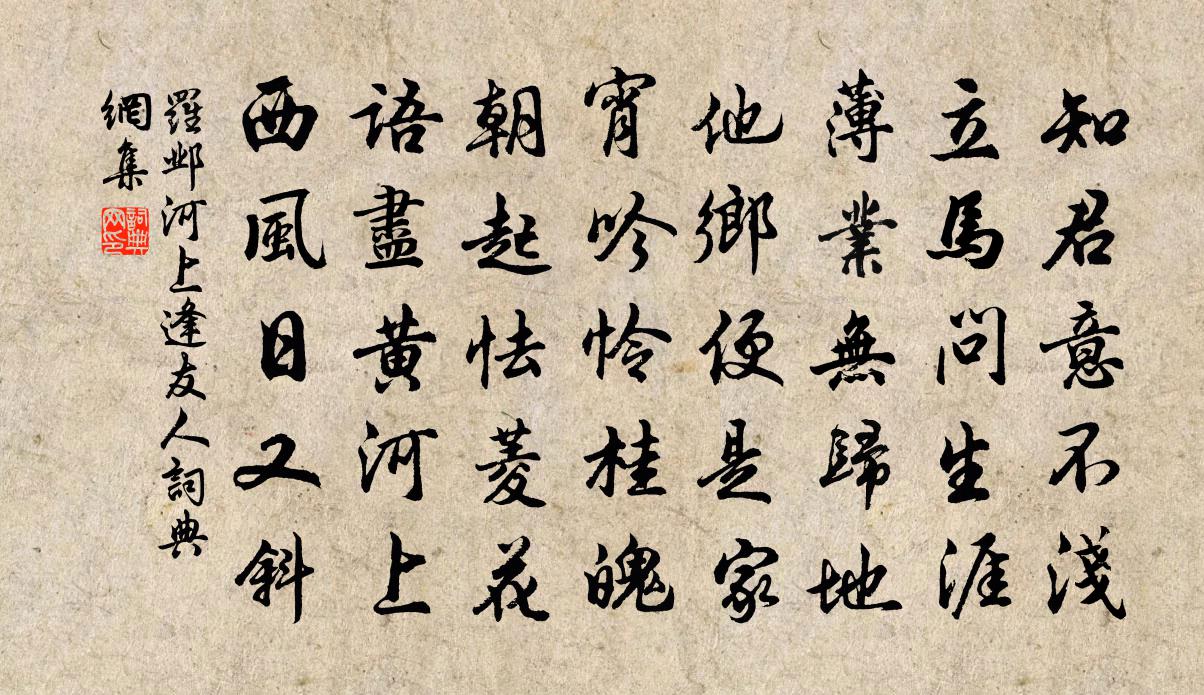 知君意不淺
立馬問生涯
薄業無歸地
他鄉便是家
宵吟怜桂魄
朝起怯菱花
語盡黄河上
西風日又斜
羅鄴河上逢友人詞典
網集
詞典
网印